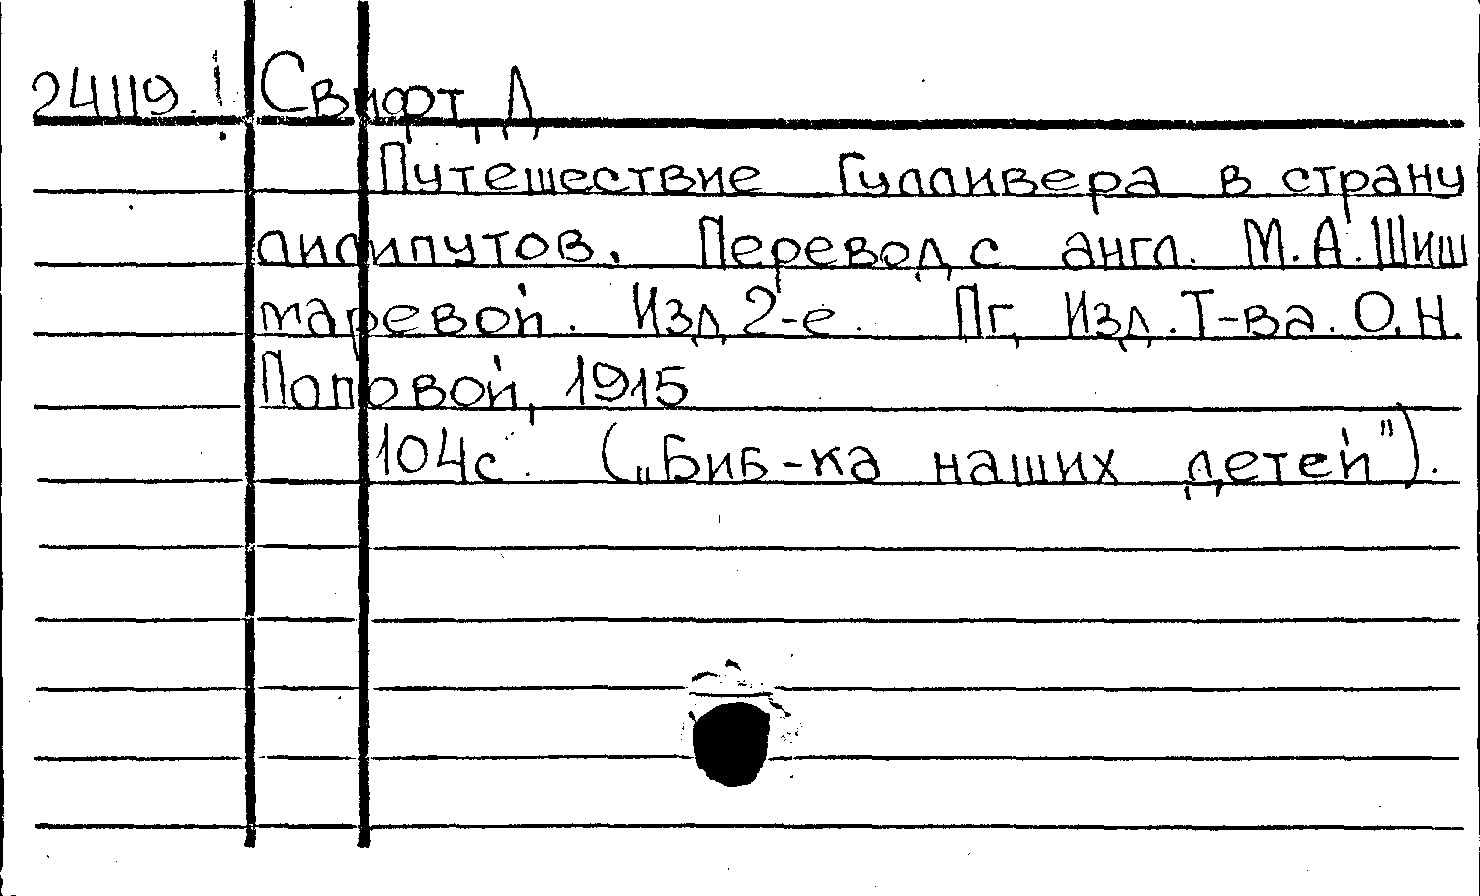 24119.! Свифт, Д
Путешествие Гулливера в страну
лилипутов. Перевод с англ. М.А.Шиш
маревой. Изд 2-е. Пг, Изд.Т-ва.О.Н.
Поповой, 1915
104с. („Биб-ка наших детей").